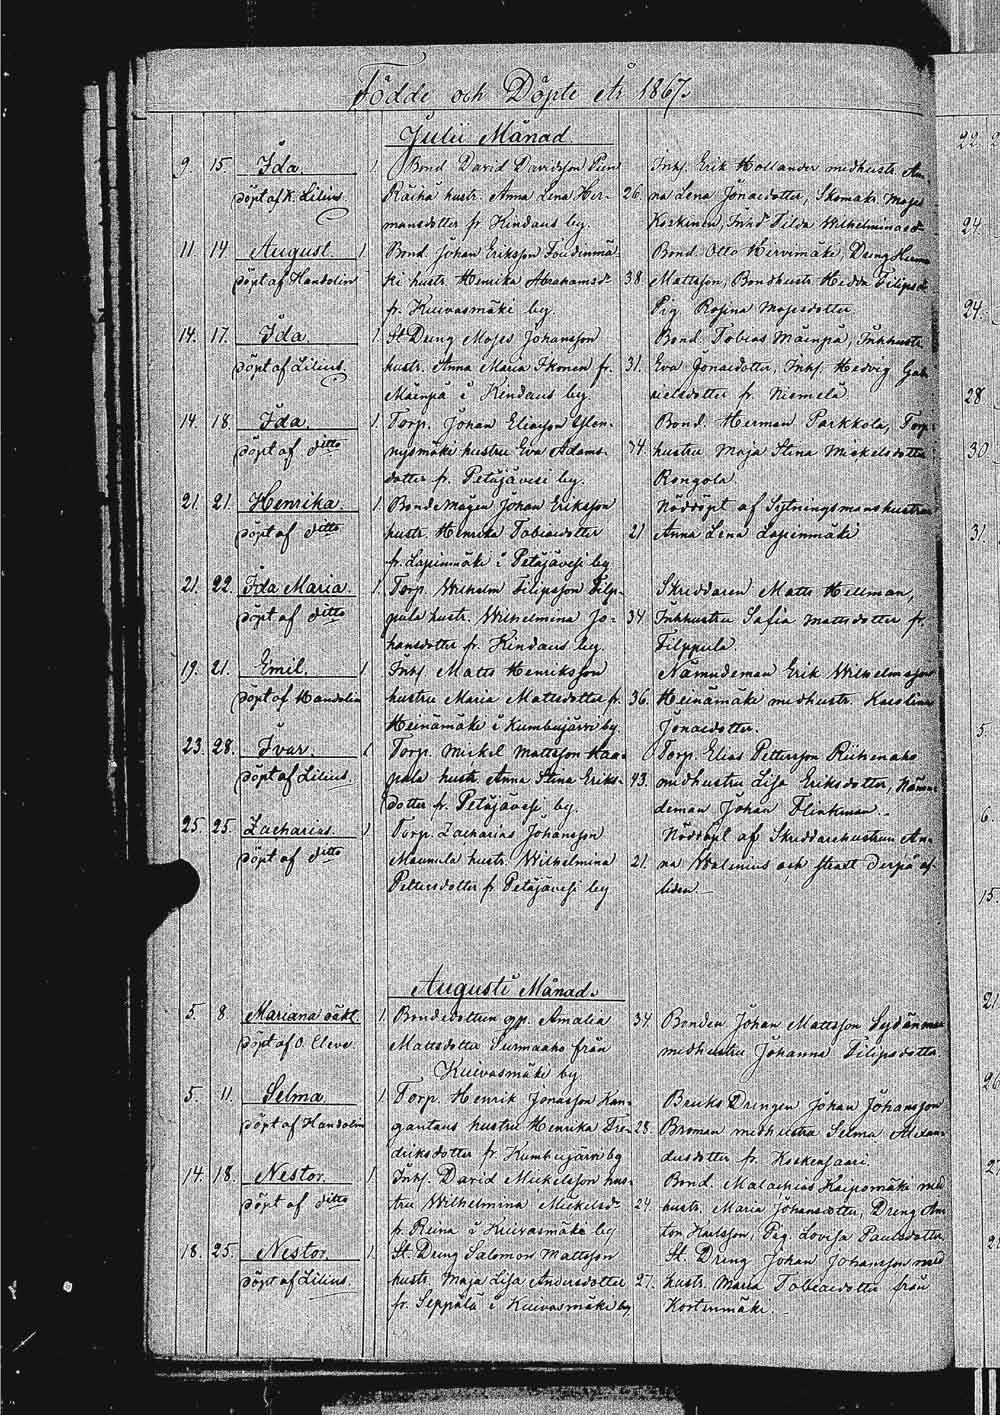 Födde och Döpte år 1867.
Julii Månad.
9. 15. Ida. 1. Bond David Davidsson Pien Inhs. Erik Hollander med hustr. An-
döpt af K. Lilius Räihä hustr. Anna Lena Her- 26. na Lena Jonaedotter, Skomak. Moses
mansdotter fr. Kindaus by. Koskinen, Inhd Tilda Wilhelminaed
11. 14. August. 1. Bond. Johan Eriksson Bond. Otto Hirvimäki, Dreng Herman
döpt af Handolin ki hustr. Henrika Abrahamsd. 38. Mattsson, Bondhustr. Hedda Filipsd
fr. Kuivasmäki by. Pig. Rosina Mosesdotter.
14. 17. Ida. 1. St Dreng Moses Johansson Bond. Tobias Mäinpä, Inhhustr.
döpt af Lilius. hustr. Anna Maria Ikonen fr. 31. Eva Jonaedotter, Inhs. Hedvig Gab
Mäinpä i Kindaus by. rielsdotter fr. Niemelä
14. 18. Ida. 1. Torp. Johan Eliasson Ylen- Bond. Herman Parkkola, Torp
döpt af ditto nysmäki hustru Eva Adams- 34. hustru Maja Stina Mickelsdotter
dotter fr. Petäjävesi by. Rongola.
21. 21. Henrika. 1. Bondemågen Johan Eriksson Nöddöpt af Sytningsmanshustrun
döpt af ditto hustr. Henrika Tobiaedotter 21 Anna Lena Lapinmäki
fr. Lapinmäki i Petäjävesi by
21. 22. Ida Maria. 1. Torp. Wilhelm Filipsson Filp- Skreddaren Matts Hellman,
döpt af ditto pula hustr. Wilhelmina Jo- 34. Inhhustru Sofia Mattsdotter fr.
hansdotter fr. Kindaus by. Filppula.
19. 21. Emil. 1 Inhs Matts Henriksson Nämndeman Erik Wilhelmsson
döpt af Handolin hustru Maria Mattsdotter fr. 36. Heinämäki med hustr. Karolina
Heinämäki i Kumbujärvi by. Jonaedotter.
23. 28. Ivar. 1 Torp. Mickel Mattsson Haa- Torp. Elias Pettersson Riihenaho
döpt af Lilius. pala hustr. Anna Stina Eriks- 43. med hustru Lisa Eriksdotter, Nämn-
dotter fr. Petäjävesi by. deman Johan Flinkman.
25. 25. Zacharias. 1 Torp. Zacharias Johansson Nöddöpt af Skreddarehustrun An-
döpt af ditto Maunula hustr. Wilhelmina 21 na Walenius och strax derpå af-
Pettersdotter fr Petäjävesi by liden.
Augusti Månad.
5. 8. Mariana oäkt 1. Bondedottren Amalia 34. Bonden Johan Mattsson Sydänmaa
döpt af O. Cleve. Mattsdotter Surmaaho från med hustru Johanna Filipsdotter.
Kuivasmäki by.
5. 11. Selma. 1. Torp. Henrik Jonasson Kan- Bruks Drengen Johan Johansson
döpt af Handolin gantaus hustru Henrika Fre- 28. Broman med hustru Selma Alexan-
driksdotter fr. Kumbujärvi by dersdotter fr. Koskensaari.
14. 18. Nestor. 1. Inhs. David Mickelsson hus- Bond. Malachias Kaipomäki med
döpt af ditto tru Wilhelmina Mickelsd. 24. hustr. Maria Johansdotter, Dreng An-
fr. Reina i Kuivasmäki by ton Karlsson, Pig. Lovisa Paulsdotter
18. 25. Nestor. 1. St. Dreng Salomon Mattsson St. Dreng Johan Johansson med
döpt af Lilius. hustr. Maja Lisa Andersdotter 27. hustr. Maria Tobiaedotter från
fr. Seppälä i Kuivasmäki by Kortenmäki.